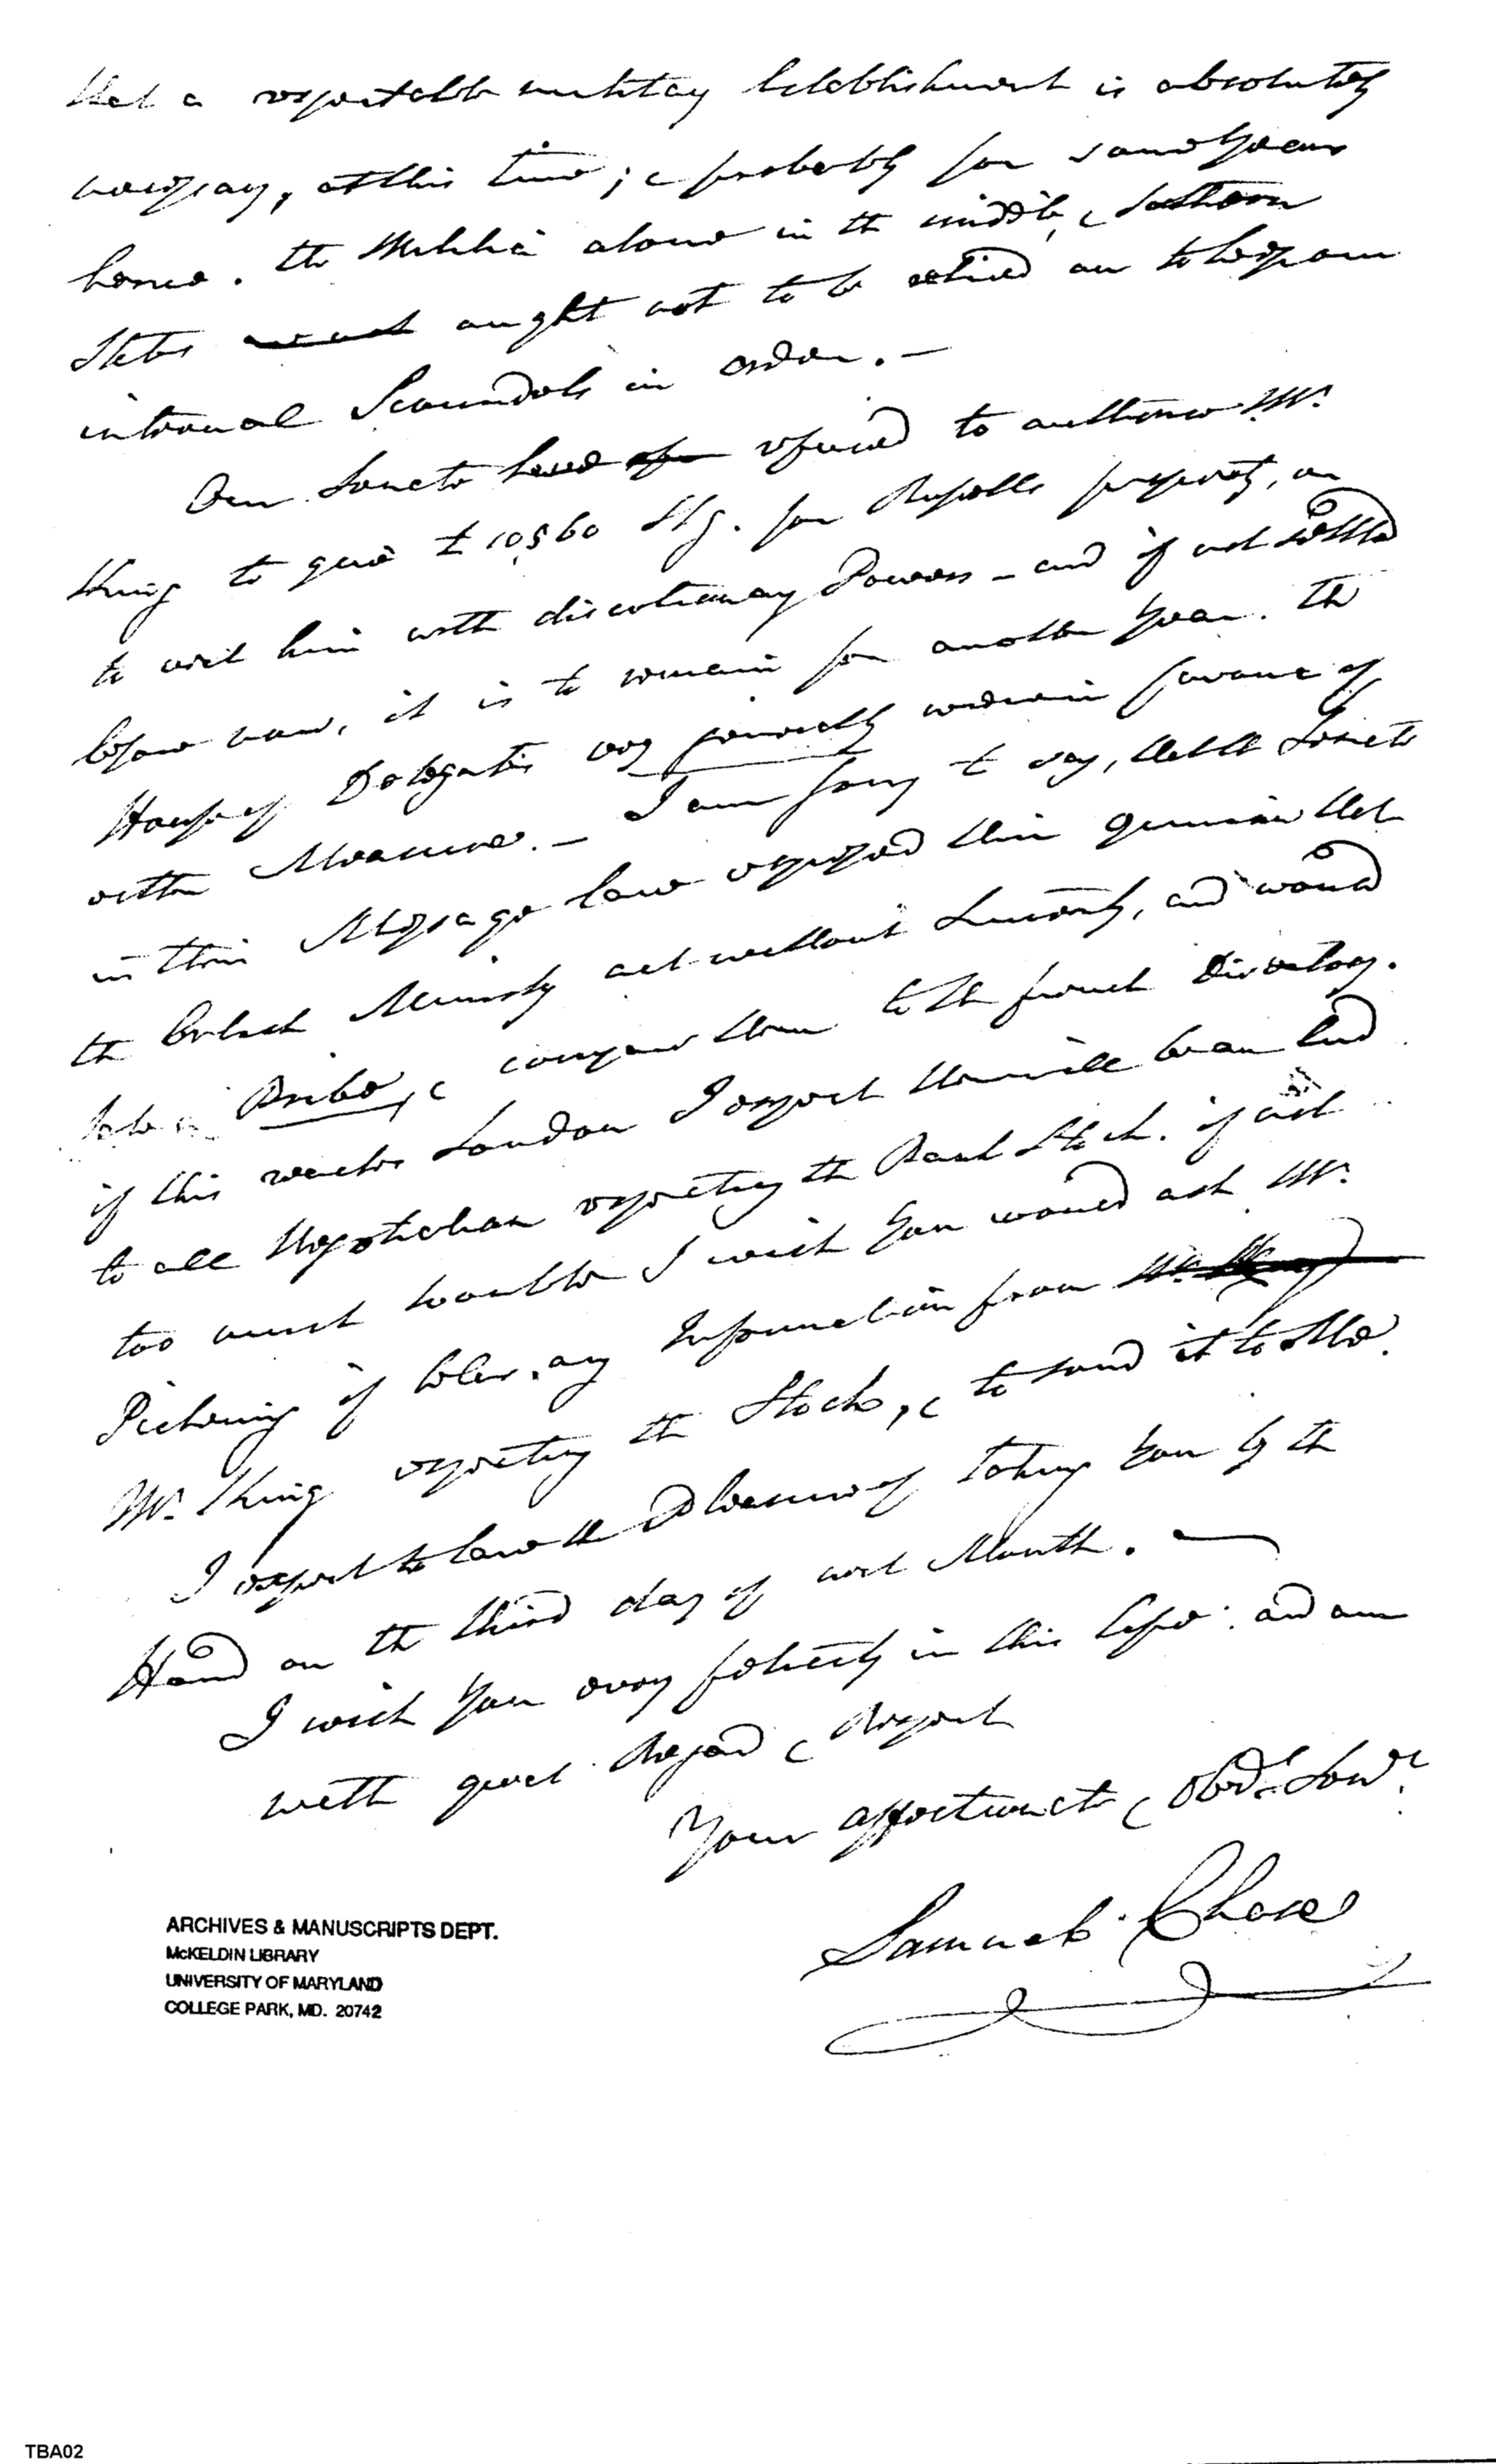 that a respectable military Establishment is absolutely
necessary, at this time; & probably for some years
hence. the Militia alone in the middle, & Southern
States ought not to be relied on to keep our
internal Scoundrels in order. —
Our Senate have refused to authorise Mr.
King to give £ 10,560 Stg. for Russells property, or
to vest him with discretionary Powers – and if not settled
before now, it is to remain for another year. The
House of Delegates very generally were in favour of
either Measure. — I am sorry to say, that the Senate
in their Message have expressed their opinion that
the British Ministry act without Sincerity, and would
take a Bribe, & compare them to the french Directory.
if this reaches London I expect there will be an End
to all Negotiation respecting the Bank Stock. if not
too much trouble I wish you would ask Mr.
Pickering if he has any Information from
Mr. King respecting the Stock, & to send it to Me.
I expect to have the Pleasure of taking you by the
Hand on the third day of next Month. —
I wish you every felicity in this life: and am
with great Regard & Respect
Your affectionate & Obedt. Servt.
Samuel Chase
ARCHIVES & MANUSCRIPTS DEPT.
McKELDIN LIBRARY
UNIVERSITY OF MARYLAND
COLLEGE PARK, MD. 20742
TBA02